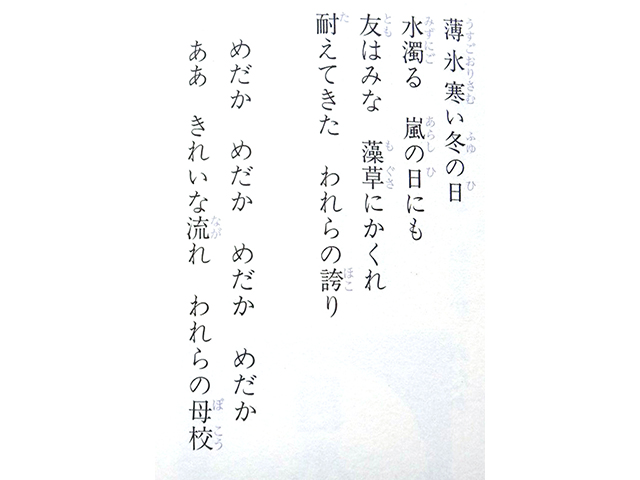 薄氷寒い冬の日
水濁る　嵐の日にも
友はみな　藻草にかくれ
耐えてきた　われらの誇り
めだか　めだか　めだか　めだか
ああ　きれいな流れ　われらの母校